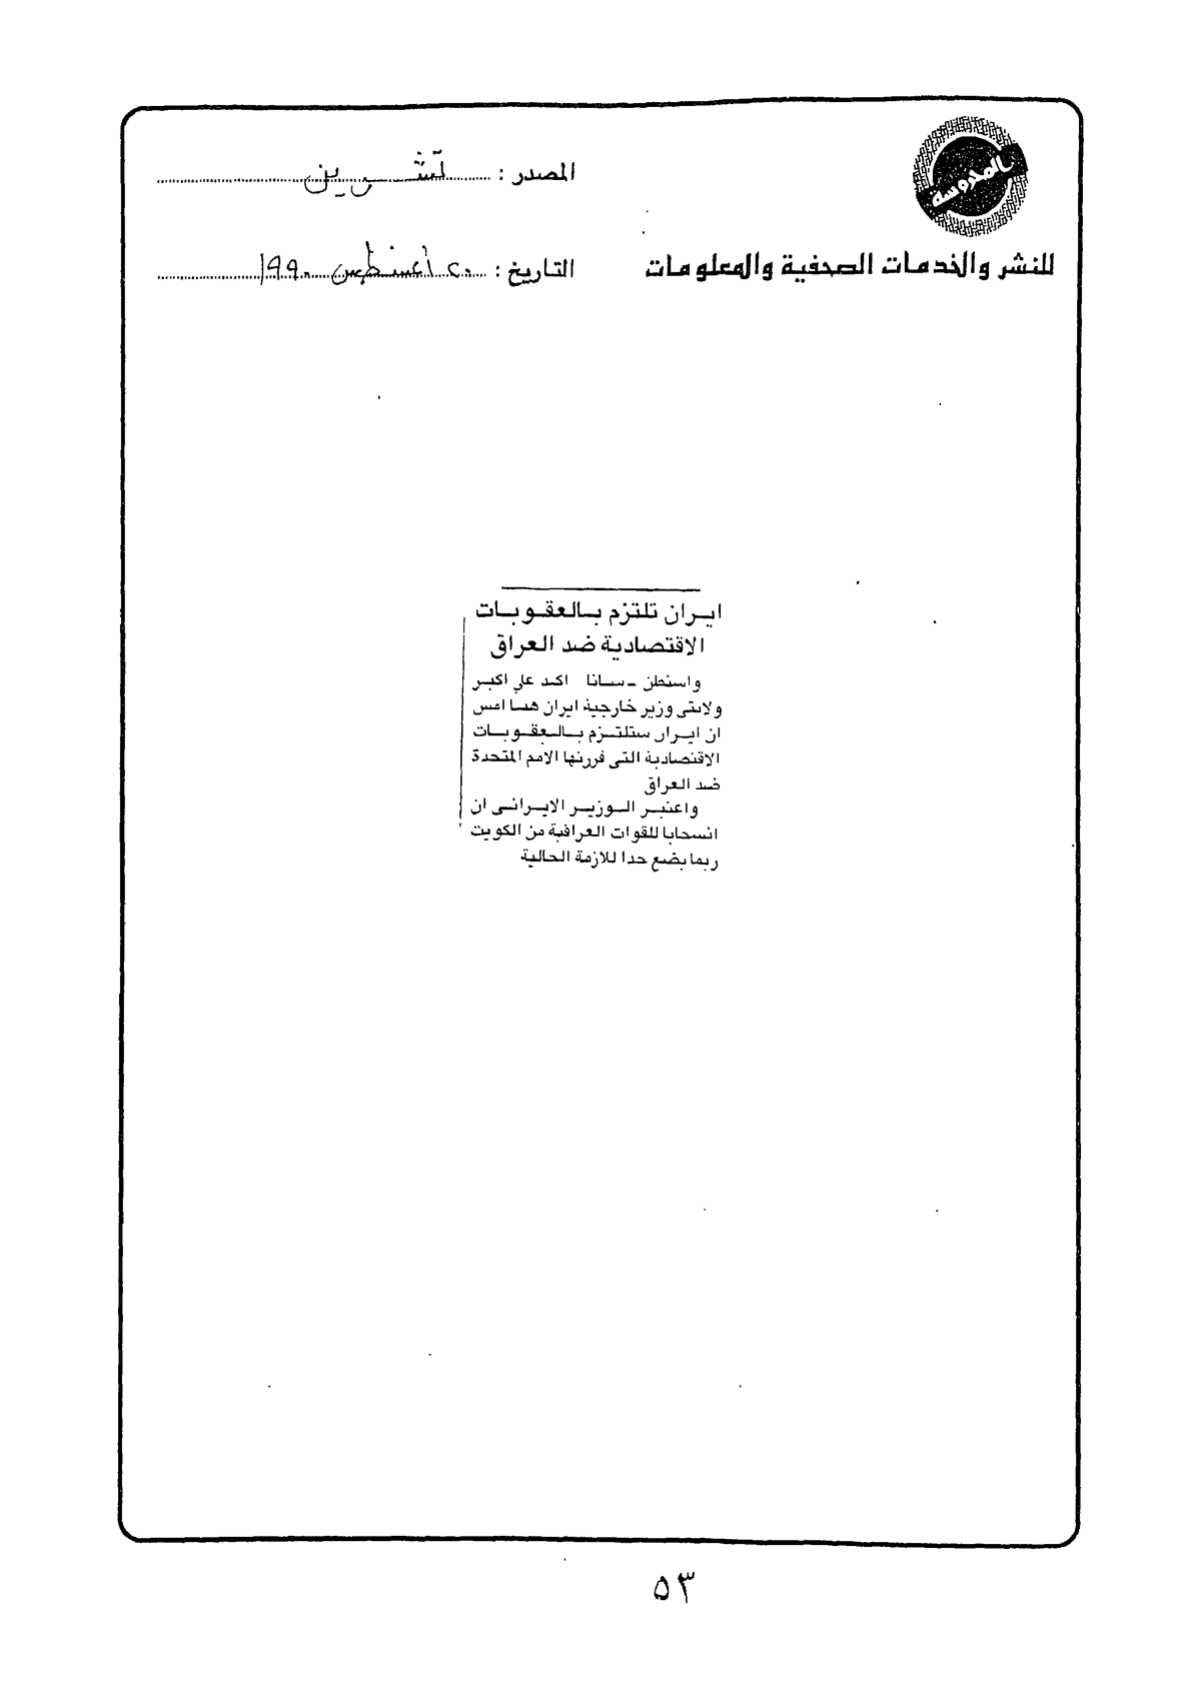 المحروسة
للنشر والخدمات الصحفية والمعلومات
المصدر : تشرين
التاريخ : ٢٠ أغسطس ١٩٩٠
ايران تلتزم بالعقوبات
الاقتصادية ضد العراق
واشنطن - سانا اكد علي اكبر
ولايتي وزير خارجية ايران هنا امس
ان ايران ستلتزم بالعقوبات
الاقتصادية التي قررتها الامم المتحدة
ضد العراق
واعتبر الوزير الايراني ان
انسحابا للقوات العراقية من الكويت
ربما يضع حدا للازمة الحالية
٥٣